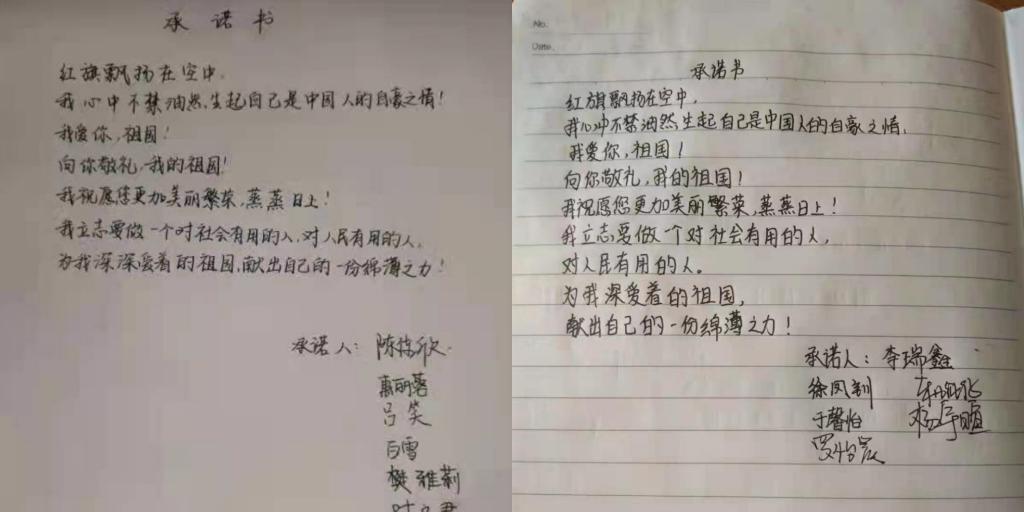 承诺书
红旗飘扬在空中,
我心中不禁油然生起自己是中国人的自豪之情!
我爱你,祖国!
向你敬礼,我的祖国!
我祝愿您更加美丽繁荣,蒸蒸日上!
我立志要做一个对社会有用的人,对人民有用的人。
为我深深爱着的祖国,献出自己的一份绵薄之力!
承诺人:
吕笑
白雪
樊雅莉
No.
Date.
承诺书
红旗飘扬在空中,
我心中不禁油然生起自己是中国人的自豪之情,
我爱你,祖国!
向你敬礼,我的祖国!
我祝愿您更加美丽繁荣,蒸蒸日上!
我立志要做一个对社会有用的人,
对人民有用的人。
为我深爱着的祖国,
献出自己的一份绵薄之力!
承诺人:李瑞鑫
徐凤钏
于馨怡